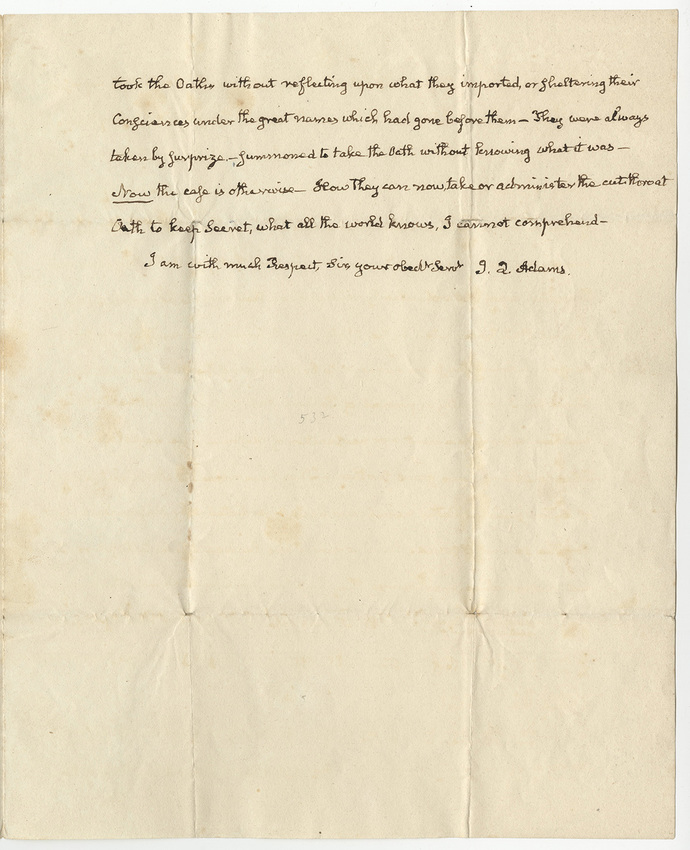 took the Oaths without reflecting upon what they imported, or sheltering their
Consciences under the great names which had gone before them — They were always
taken by surprize. — Summoned to take the Oath without knowing what it was —
Now the case is otherwise — How They can now take or administer the cutthroat
Oath to keep Secret, what all the world knows, I cannot comprehend —
I am with much Respect, Sir, your obedt Servt J. Q. Adams.
532